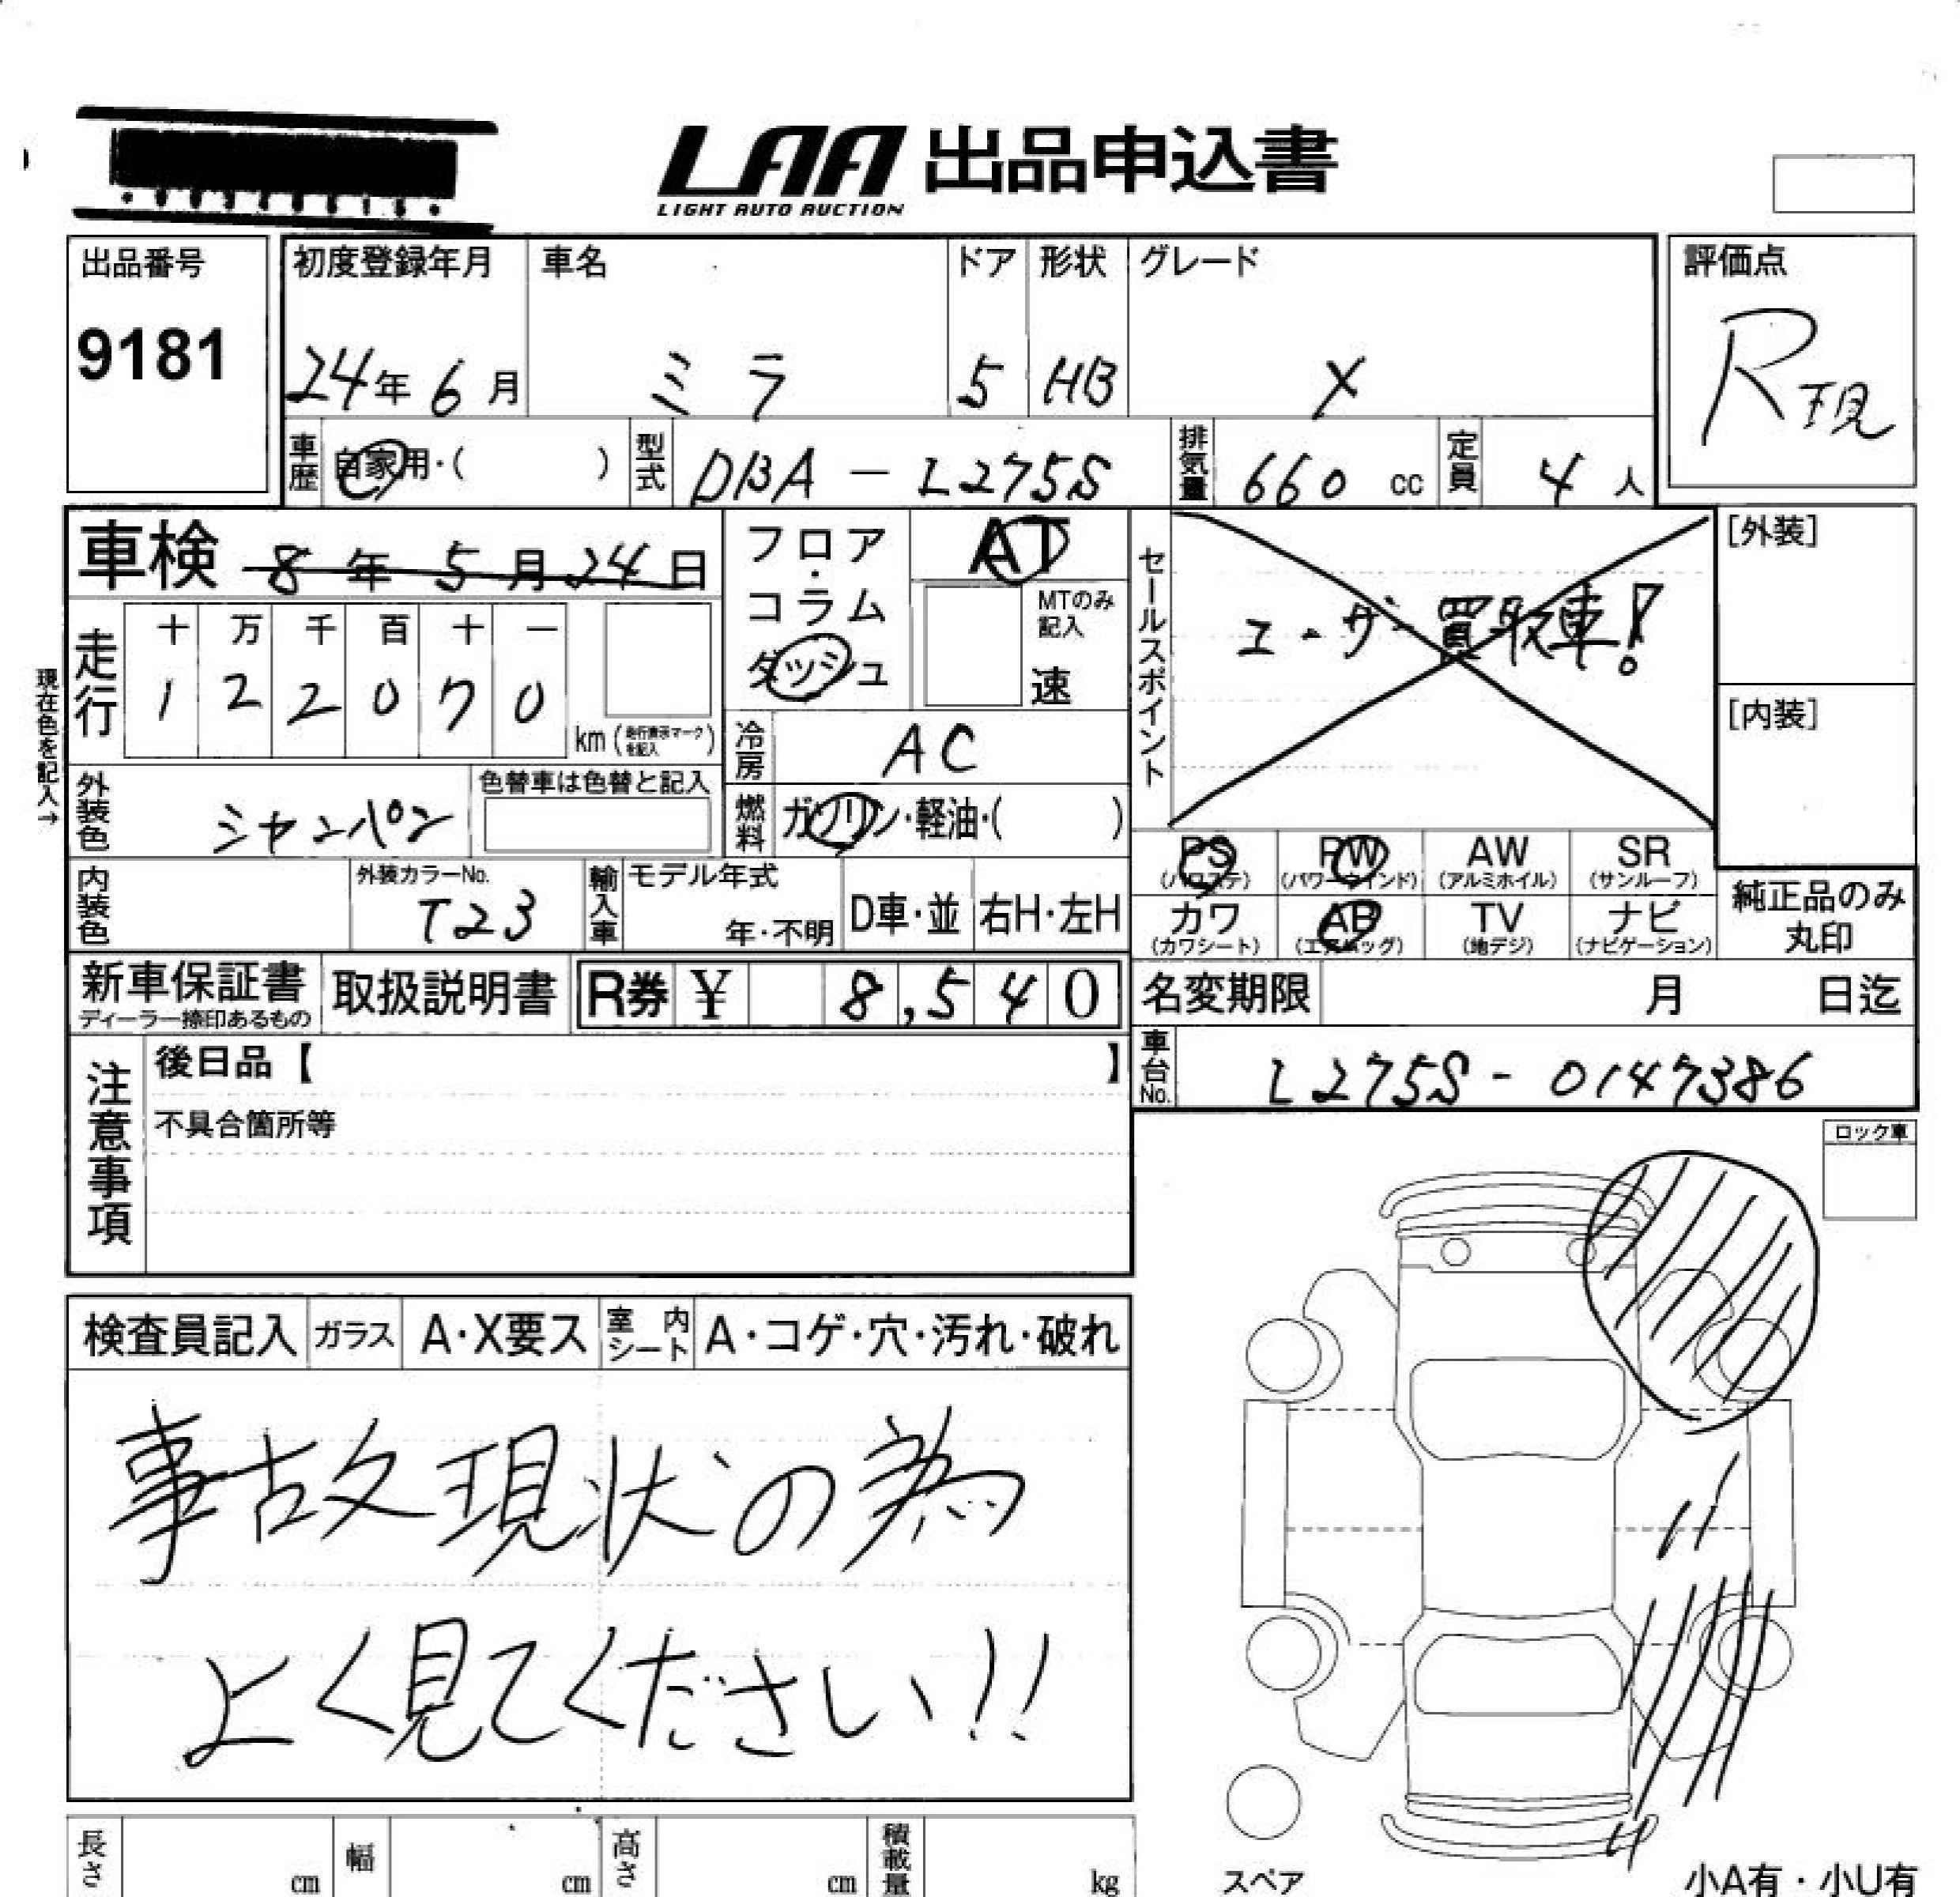 LAA 出品申込書
LIGHT AUTO AUCTION
出品番号
9181
初度登録年月
24年6月
車名
ミラ
ドア
5
形状
HB
グレード
X
評価点
R現
車歴 自家用・( )
型式 DBA-L275S
排気量 660cc
定員 4人
車検 8年5月24日
現在色を記入→
走行
十 万 千 百 十 一
1 2 2 0 7 0
km (走行表示マークを記入)
フロア・コラム
ダッシュ
AT
MTのみ記入
速
冷房 AC
燃料 ガソリン・軽油・( )
セールスポイント
ユーザー買取車!
[外装]
[内装]
外装色 シャンパン
色替車は色替と記入
内装色
外装カラーNo.
T23
輸入車
モデル年式
年・不明
D車・並
右H・左H
PS (パワステ)
PW (パワーウインド)
AW (アルミホイル)
SR (サンルーフ)
カワ (カワシート)
AB (エアバッグ)
TV (地デジ)
ナビ (ナビゲーション)
純正品のみ
丸印
新車保証書
ディーラー捺印あるもの
取扱説明書
R券 ¥ 8,540
名変期限 月 日迄
車台No. L275S-0147386
注意事項
後日品【 】
不具合箇所等
ロック車
検査員記入
ガラス A・X要ス
室内シート A・コゲ・穴・汚れ・破れ
事故現状の為
よく見てください!!
長さ cm
幅 cm
高さ cm
積載量 kg
スペア
小A有・小U有